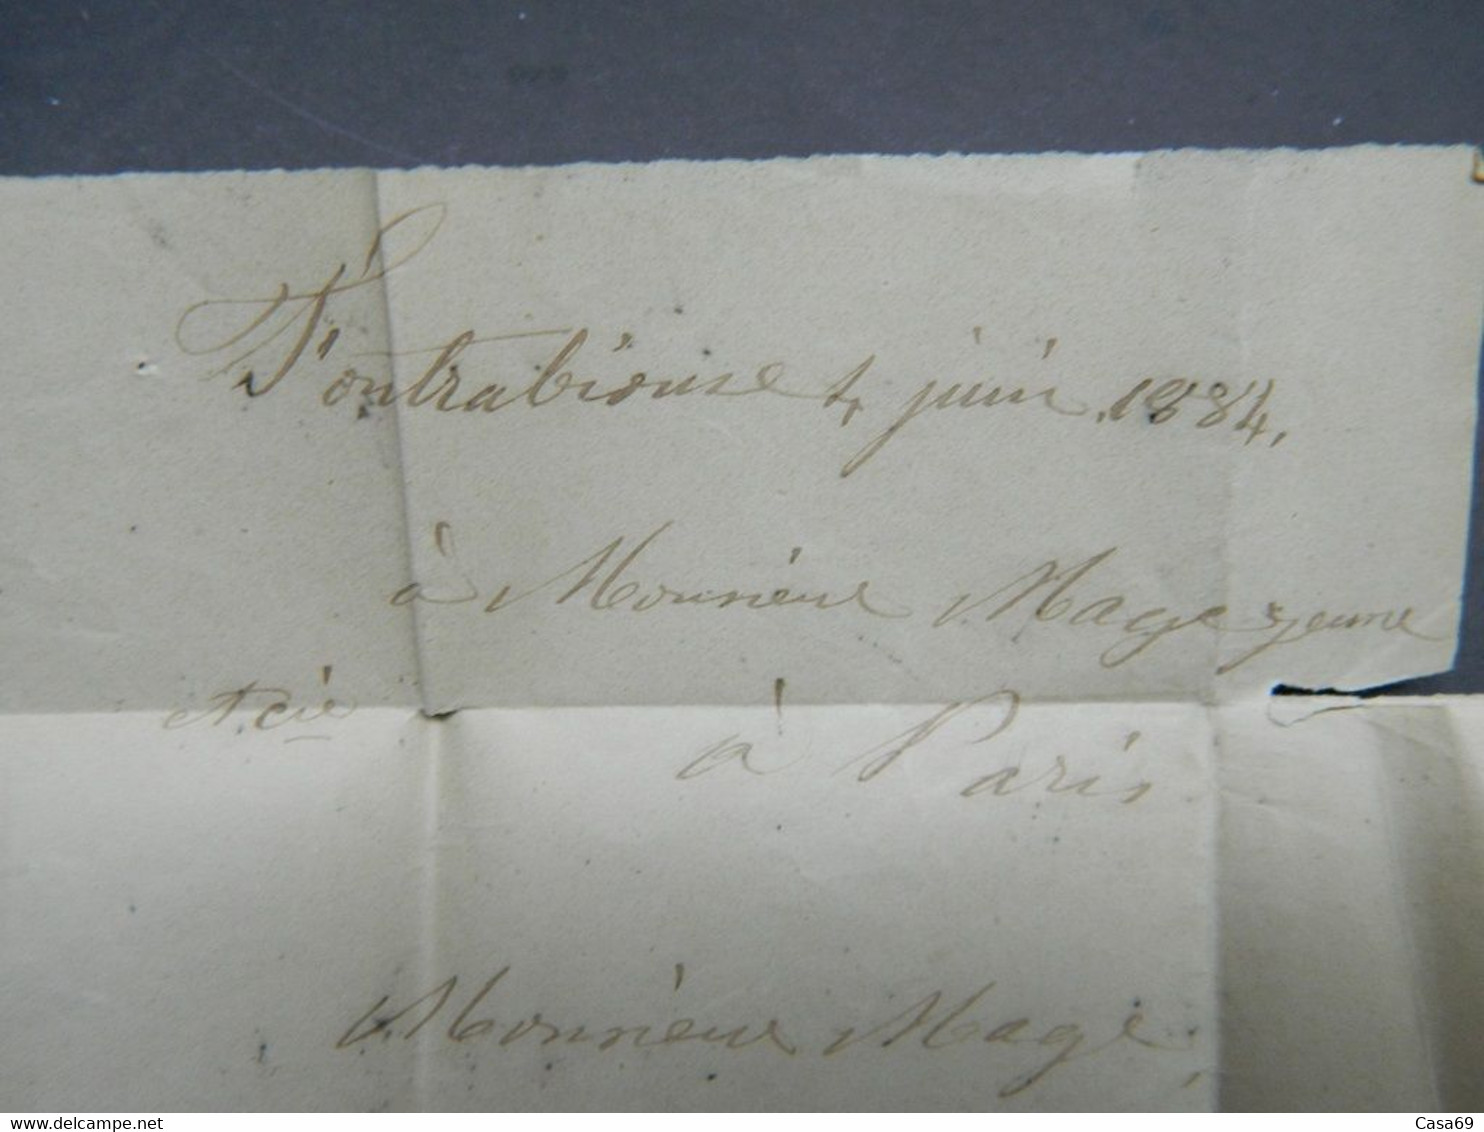 Fontrabiouse 4 juin 1884,
à Monsieur Mage jeune
et Cie
à Paris
Monsieur Mage,
delcampe.net
Casa69